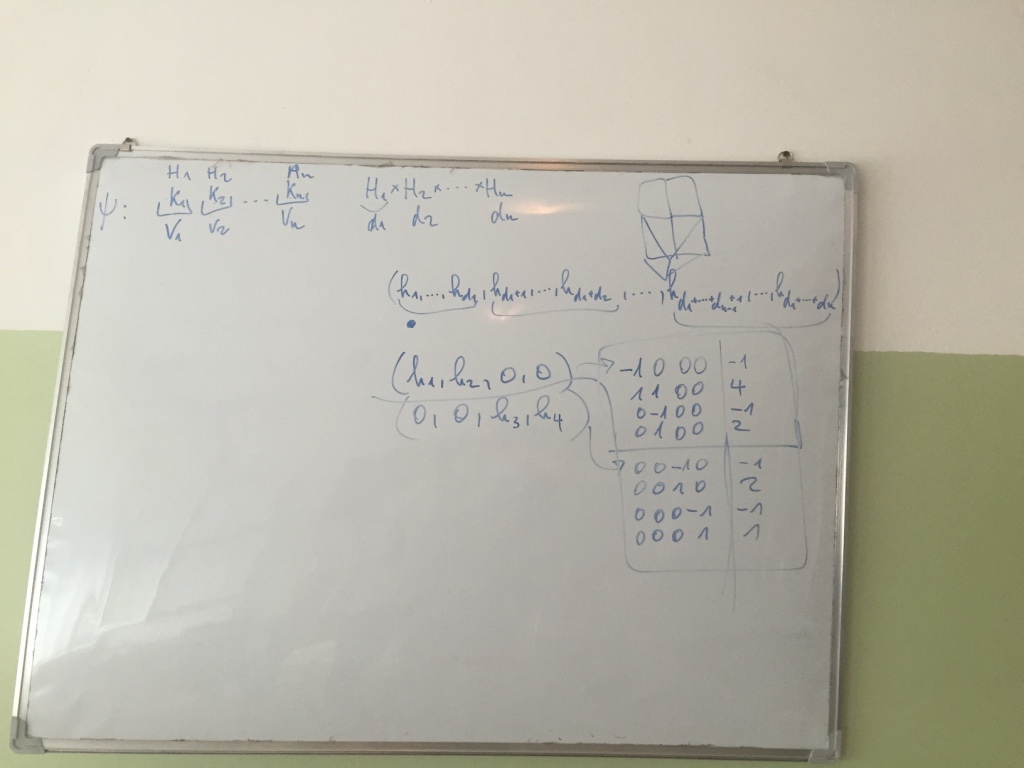 H1 H2 Hn
ψ: K1, K2, ... Kn, H1 × H2 × ... × Hn
V1 V2 Vn d1 d2 dn
(h1,...,hd1, hd1+1,...,hd1+d2,...,hd1+...+dn-1+1,...,hd1+...+dn)
(h1, h2, 0, 0)
(0, 0, h3, h4)
-1 0 0 0 | -1
1 1 0 0 | 4
0 -1 0 0 | -1
0 1 0 0 | 2
0 0 -1 0 | -1
0 0 1 0 | 2
0 0 0 -1 | -1
0 0 0 1 | 1